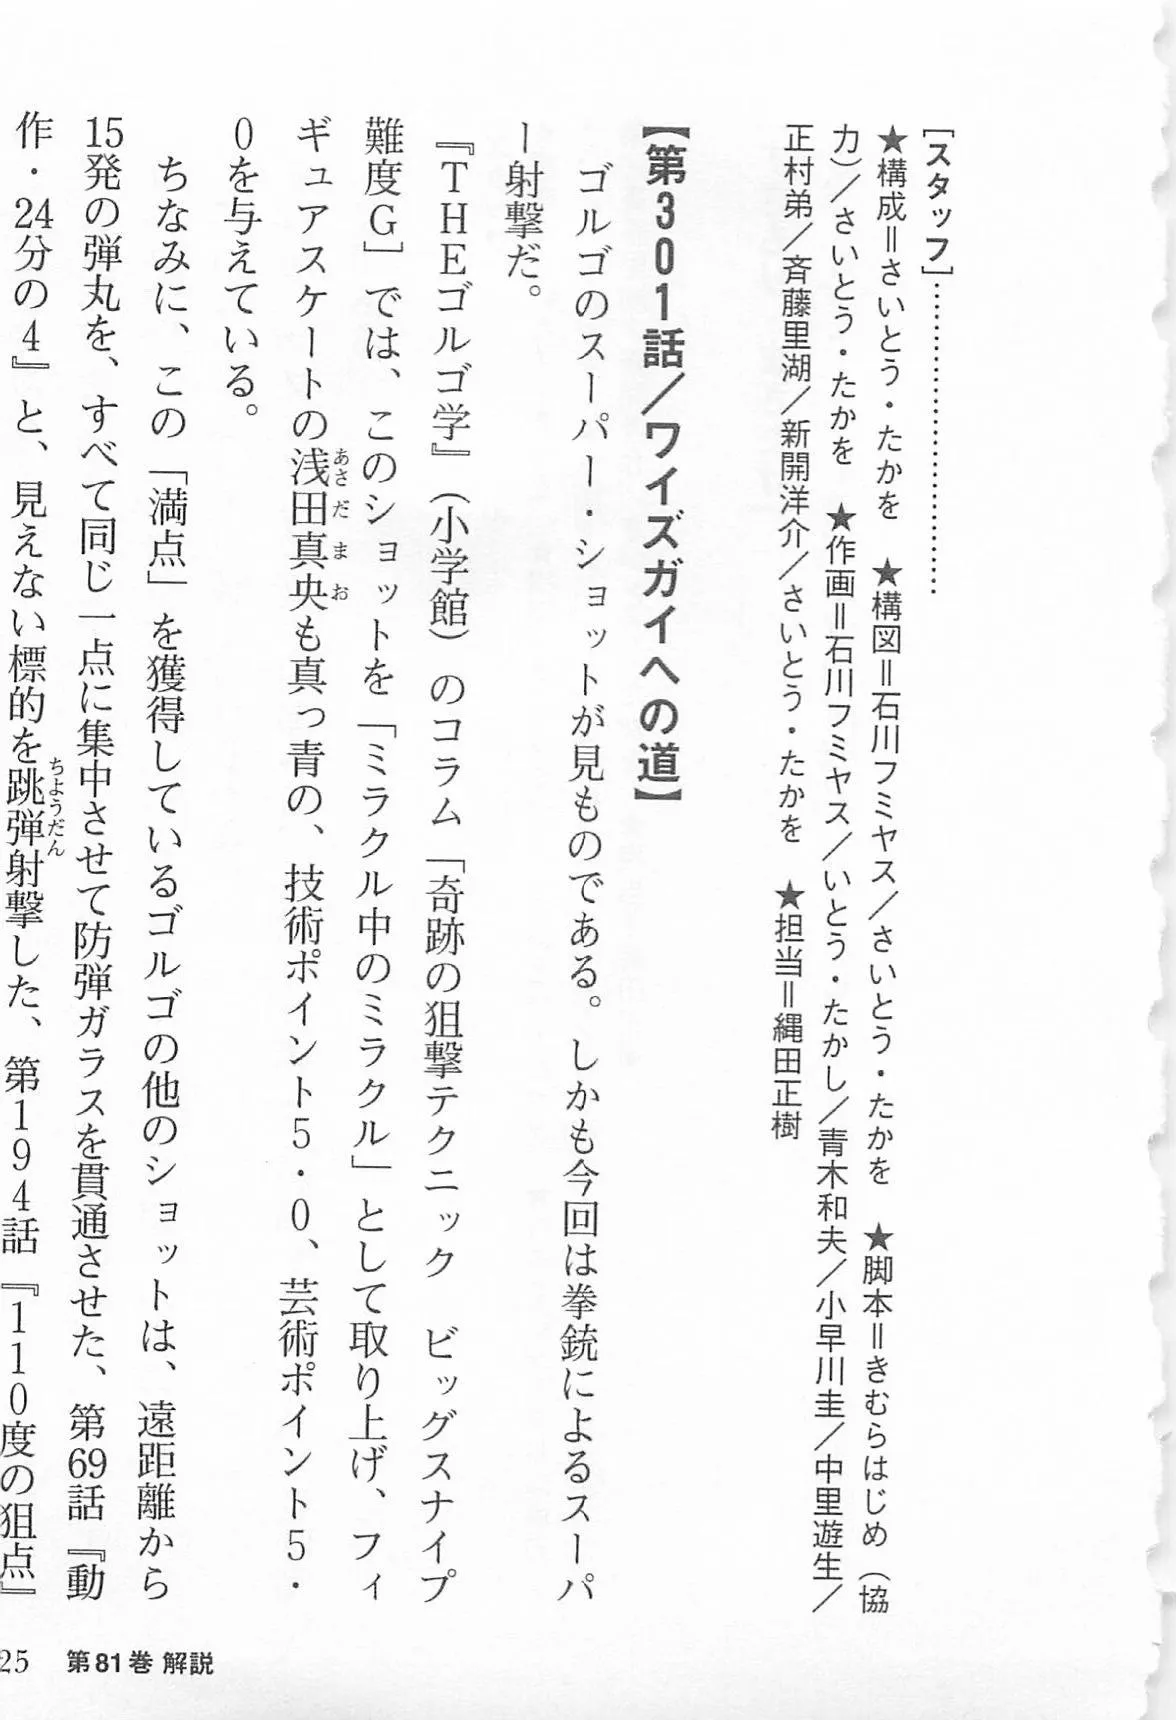 ［スタッフ］……………………………
★構成＝さいとう・たかを　★構図＝石川フミヤス／さいとう・たかを　★脚本＝きむらはじめ（協
力）／さいとう・たかを　★作画＝石川フミヤス／いとう・たかし／青木和夫／小早川圭／中里遊生／
正村弟／斉藤里湖／新開洋介／さいとう・たかを　★担当＝縄田正樹
【第301話／ワイズガイへの道】
ゴルゴのスーパー・ショットが見ものである。しかも今回は拳銃によるスーパ
ー射撃だ。
『THEゴルゴ学』（小学館）のコラム「奇跡の狙撃テクニック　ビッグスナイプ
難度G」では、このショットを「ミラクル中のミラクル」として取り上げ、フィ
ギュアスケートの浅田真央も真っ青の、技術ポイント5・0、芸術ポイント5・
あさだまお
0を与えている。
ちなみに、この「満点」を獲得しているゴルゴの他のショットは、遠距離から
15発の弾丸を、すべて同じ一点に集中させて防弾ガラスを貫通させた、第69話『動
作・24分の4』と、見えない標的を跳弾射撃した、第194話『110度の狙点』
ちようだん
25　第81巻 解説